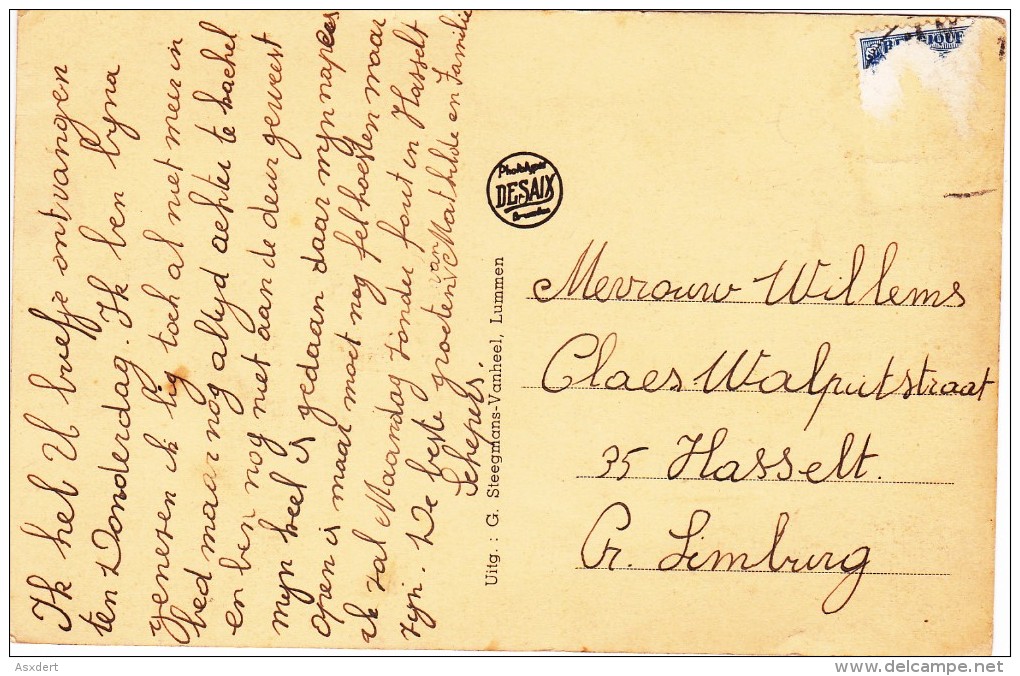 Ik heb U briefje ontvangen
ten Donderdag. Ik ben byna
genesen ik lig toch al niet meer in
bed maar nog altyd achter te kachel
en ben nog niet aan de deur geweest
myn keel is gedaan daar myn
open is maar moet nog fel hoesten maar
ik zal Maandag zonder fout in Hasselt
zyn. De beste groeten van Mathilde en Familie
Schepers.
Uitg. : G. Steegmans-Vanheel, Lummen
DESAIX
BELGIQUE
Mevrouw Willems
Claes Walputstraat
35 Hasselt.
Pr. Limburg
Asxdert
www.delcampe.net